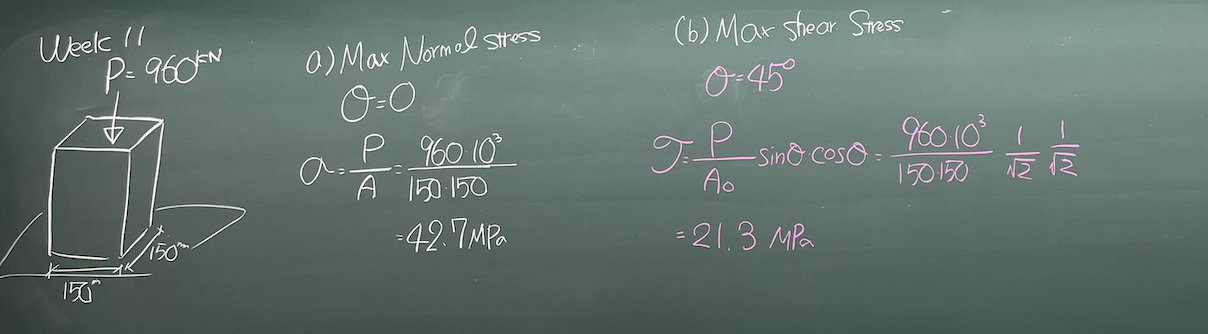 Week 11
P = 960 kN
150 m
150 mm
a) Max Normal Stress
θ = 0
σ = P/A = 960·10³ / 150·150
= 42.7 MPa
(b) Max Shear Stress
θ = 45°
τ = P/A₀ sinθ·cosθ = 960·10³ / 150·150 1/√2 1/√2
= 21.3 MPa